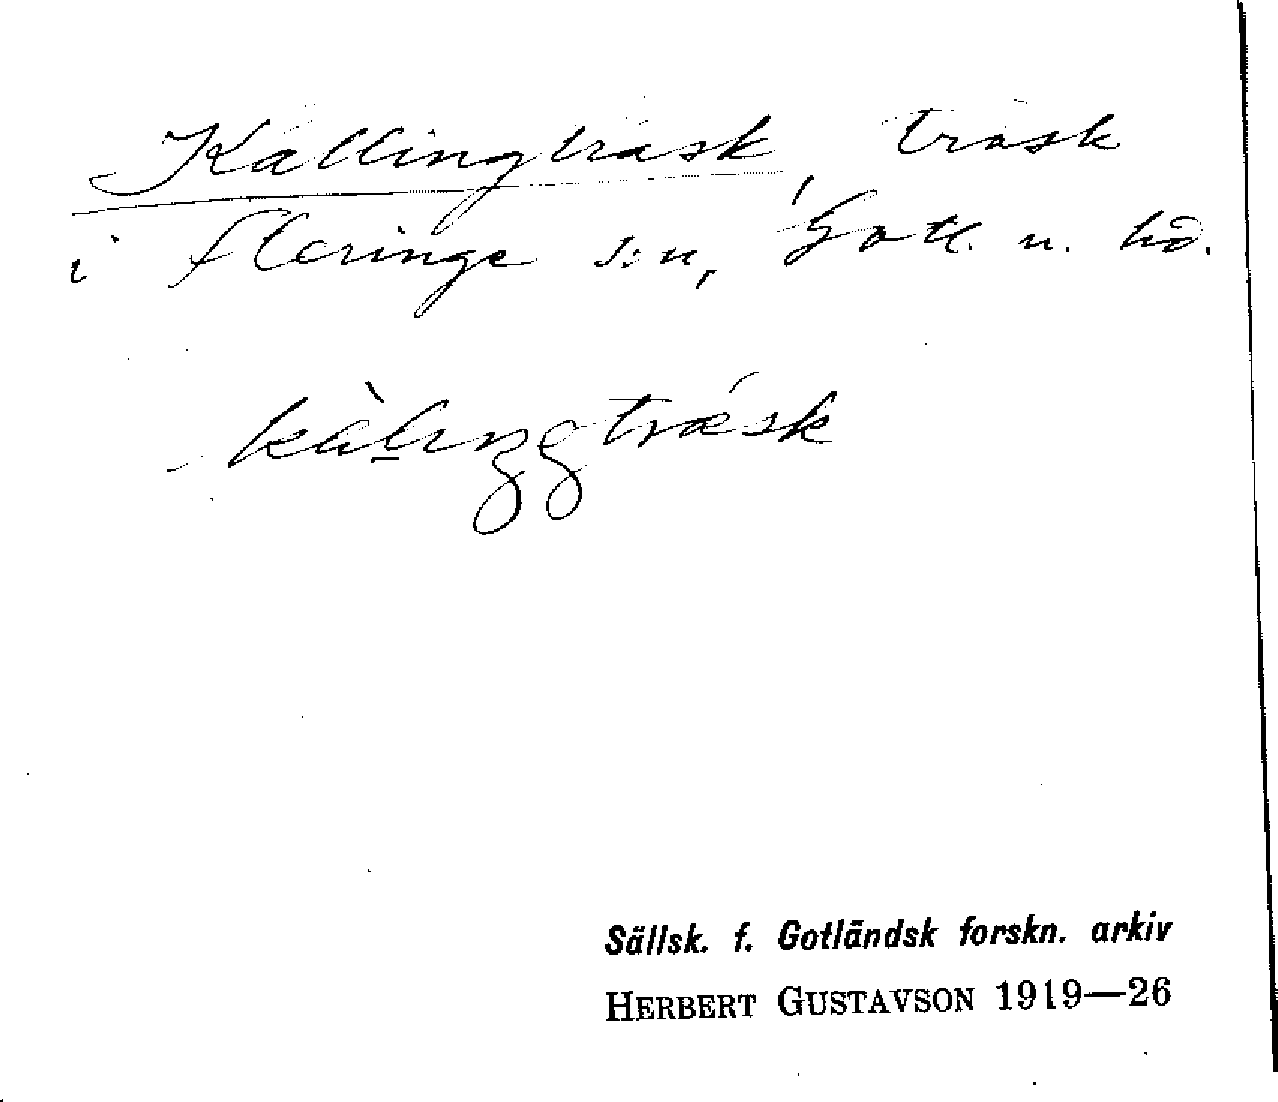 Källingträsk, träsk
i Fleringe s:n, Gotl. n. hd.
kàlıŋgtrǽsk
Sällsk. f. Gotländsk forskn. arkiv
HERBERT GUSTAVSON 1919—26